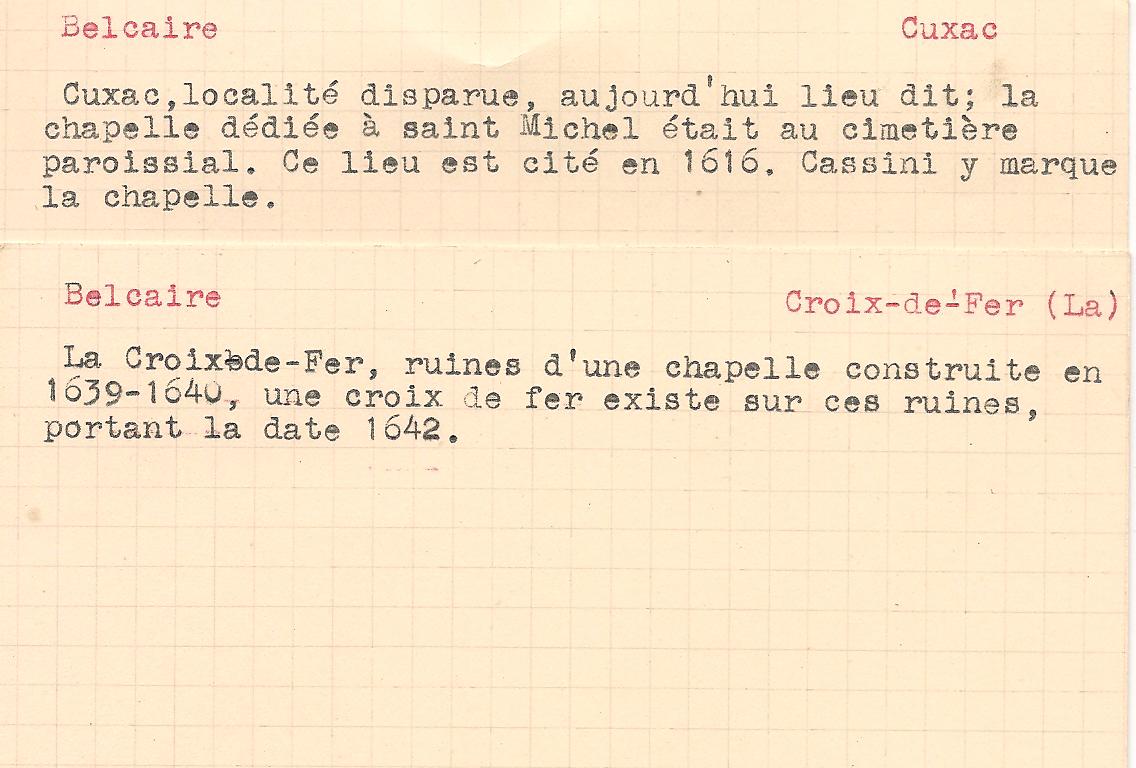 Belcaire Cuxac
Cuxac,localité disparue, aujourd'hui lieu dit; la
chapelle dédiée à saint Michel était au cimetière
paroissial. Ce lieu est cité en 1616. Cassini y marque
la chapelle.
Belcaire Croix-de-'Fer (La)
La Croix-de-Fer, ruines d'une chapelle construite en
1639-1640, une croix de fer existe sur ces ruines,
portant la date 1642.